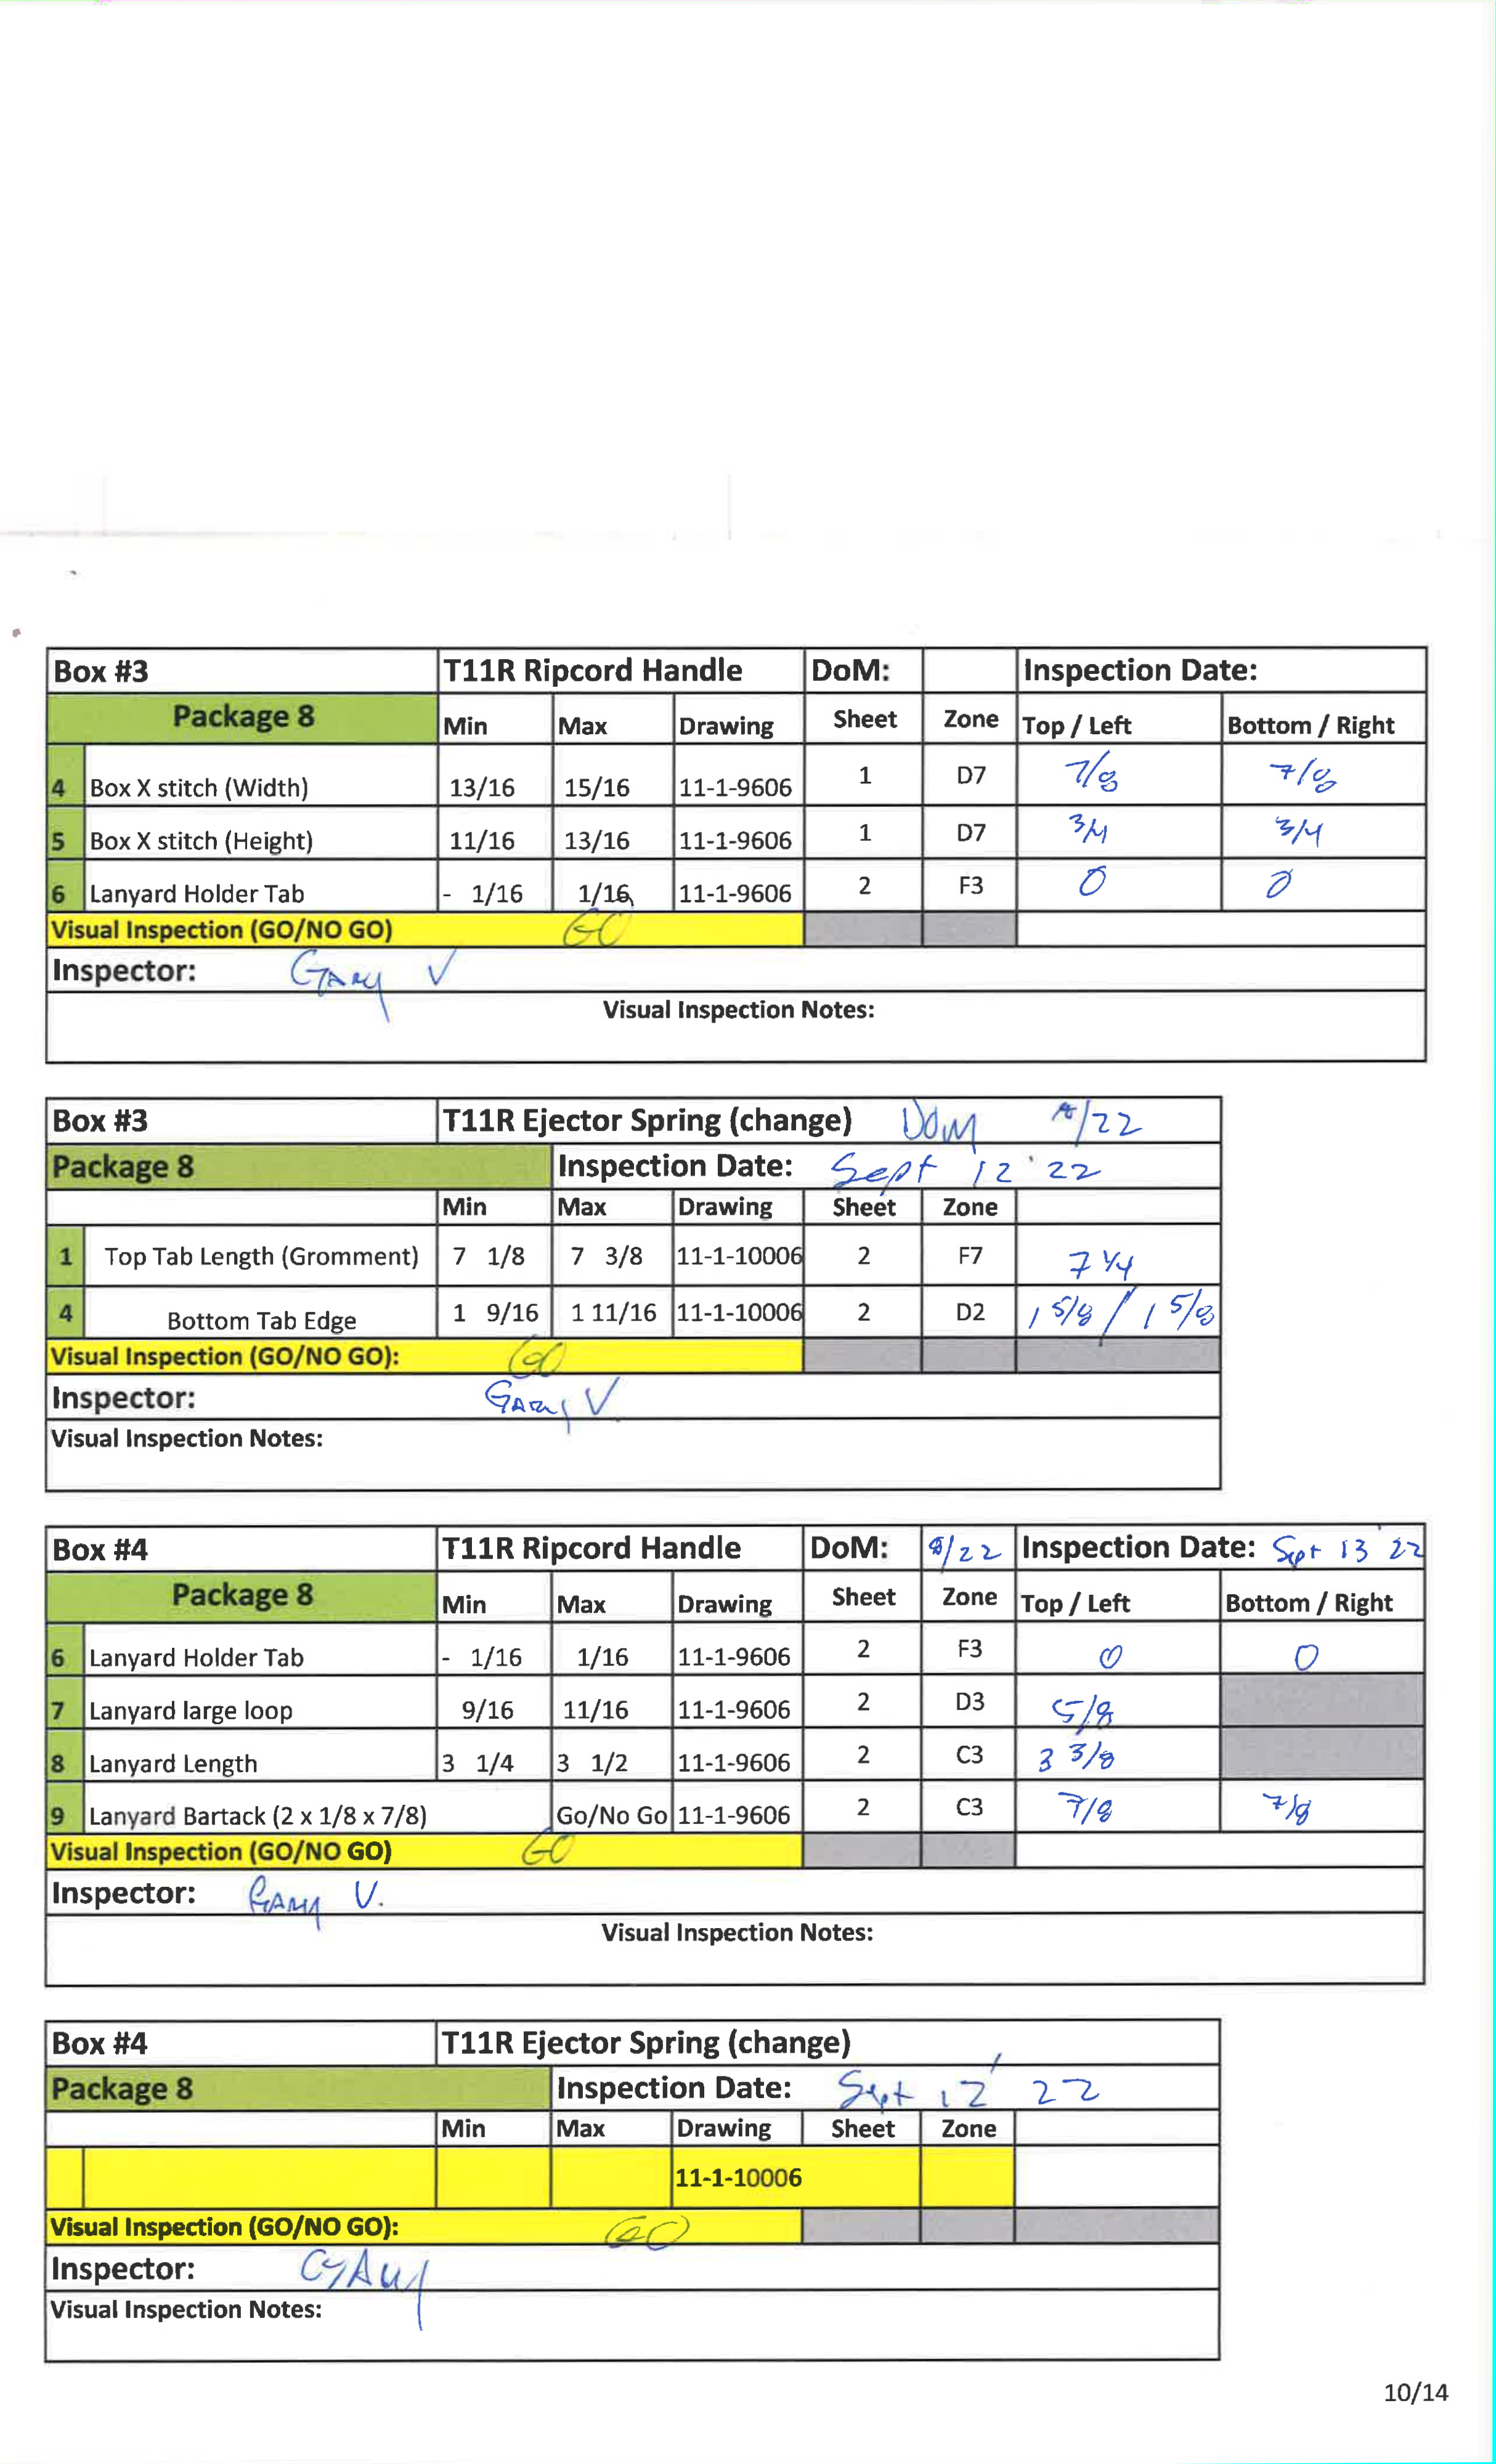 Box #3 T11R Ripcord Handle DoM: Inspection Date:
Package 8 Min Max Drawing Sheet Zone Top / Left Bottom / Right
4 Box X stitch (Width) 13/16 15/16 11-1-9606 1 D7 7/8 7/8
5 Box X stitch (Height) 11/16 13/16 11-1-9606 1 D7 3/4 3/4
6 Lanyard Holder Tab - 1/16 1/16 11-1-9606 2 F3 0 0
Visual Inspection (GO/NO GO) GO
Inspector: Gary V
Visual Inspection Notes:
Box #3 T11R Ejector Spring (change) DOM /22
Package 8 Inspection Date: Sept 12 '22
Min Max Drawing Sheet Zone
1 Top Tab Length (Gromment) 7 1/8 7 3/8 11-1-10006 2 F7 7 1/4
4 Bottom Tab Edge 1 9/16 1 11/16 11-1-10006 2 D2 1 5/8 / 1 5/8
Visual Inspection (GO/NO GO): GO
Inspector: Gary V
Visual Inspection Notes:
Box #4 T11R Ripcord Handle DoM: /22 Inspection Date: Sept 13 '22
Package 8 Min Max Drawing Sheet Zone Top / Left Bottom / Right
6 Lanyard Holder Tab - 1/16 1/16 11-1-9606 2 F3 0 0
7 Lanyard large loop 9/16 11/16 11-1-9606 2 D3 5/8
8 Lanyard Length 3 1/4 3 1/2 11-1-9606 2 C3 3 3/8
9 Lanyard Bartack (2 x 1/8 x 7/8) Go/No Go 11-1-9606 2 C3 7/8 7/8
Visual Inspection (GO/NO GO) GO
Inspector: Gary V.
Visual Inspection Notes:
Box #4 T11R Ejector Spring (change)
Package 8 Inspection Date: Sept 12 ' 22
Min Max Drawing Sheet Zone
11-1-10006
Visual Inspection (GO/NO GO): GO
Inspector: Gary
Visual Inspection Notes:
10/14